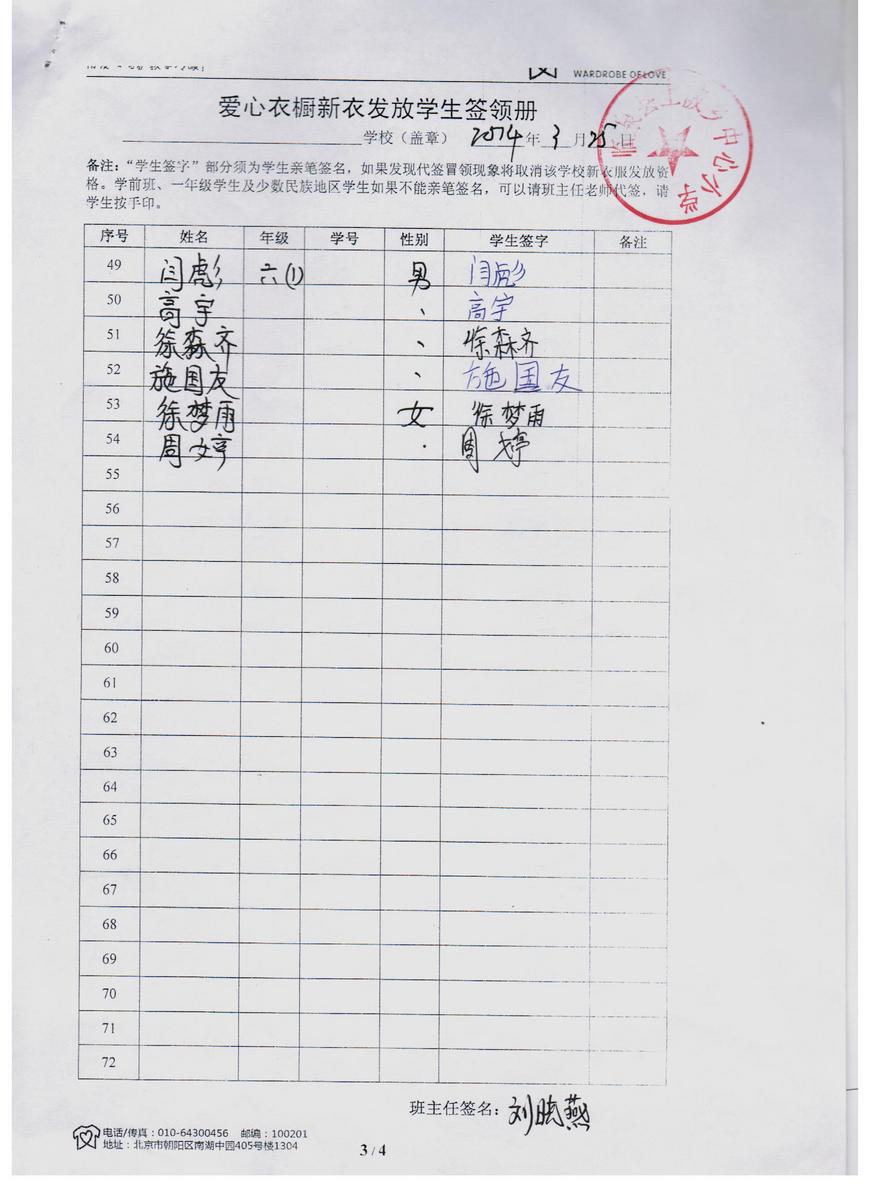 WARDROBE OF LOVE
爱心衣橱新衣发放学生签领册
学校（盖章） 2014年 3月25日
中心小学
备注：“学生签字”部分须为学生亲笔签名，如果发现代签冒领现象将取消该学校新衣服发放资
格。学前班、一年级学生及少数民族地区学生如果不能亲笔签名，可以请班主任老师代签，请
学生按手印。
序号 姓名 年级 学号 性别 学生签字 备注
49 闫彪 六(1) 男 闫彪
50 高宇 、 高宇
51 徐森齐 、 徐森齐
52 施国友 、 施国友
53 徐梦雨 女 徐梦雨
54 周婷 . 周婷
55
56
57
58
59
60
61
62
63
64
65
66
67
68
69
70
71
72
班主任签名：刘晓燕
电话/传真：010-64300456 邮编：100201
地址：北京市朝阳区南湖中园405号楼1304
3 / 4